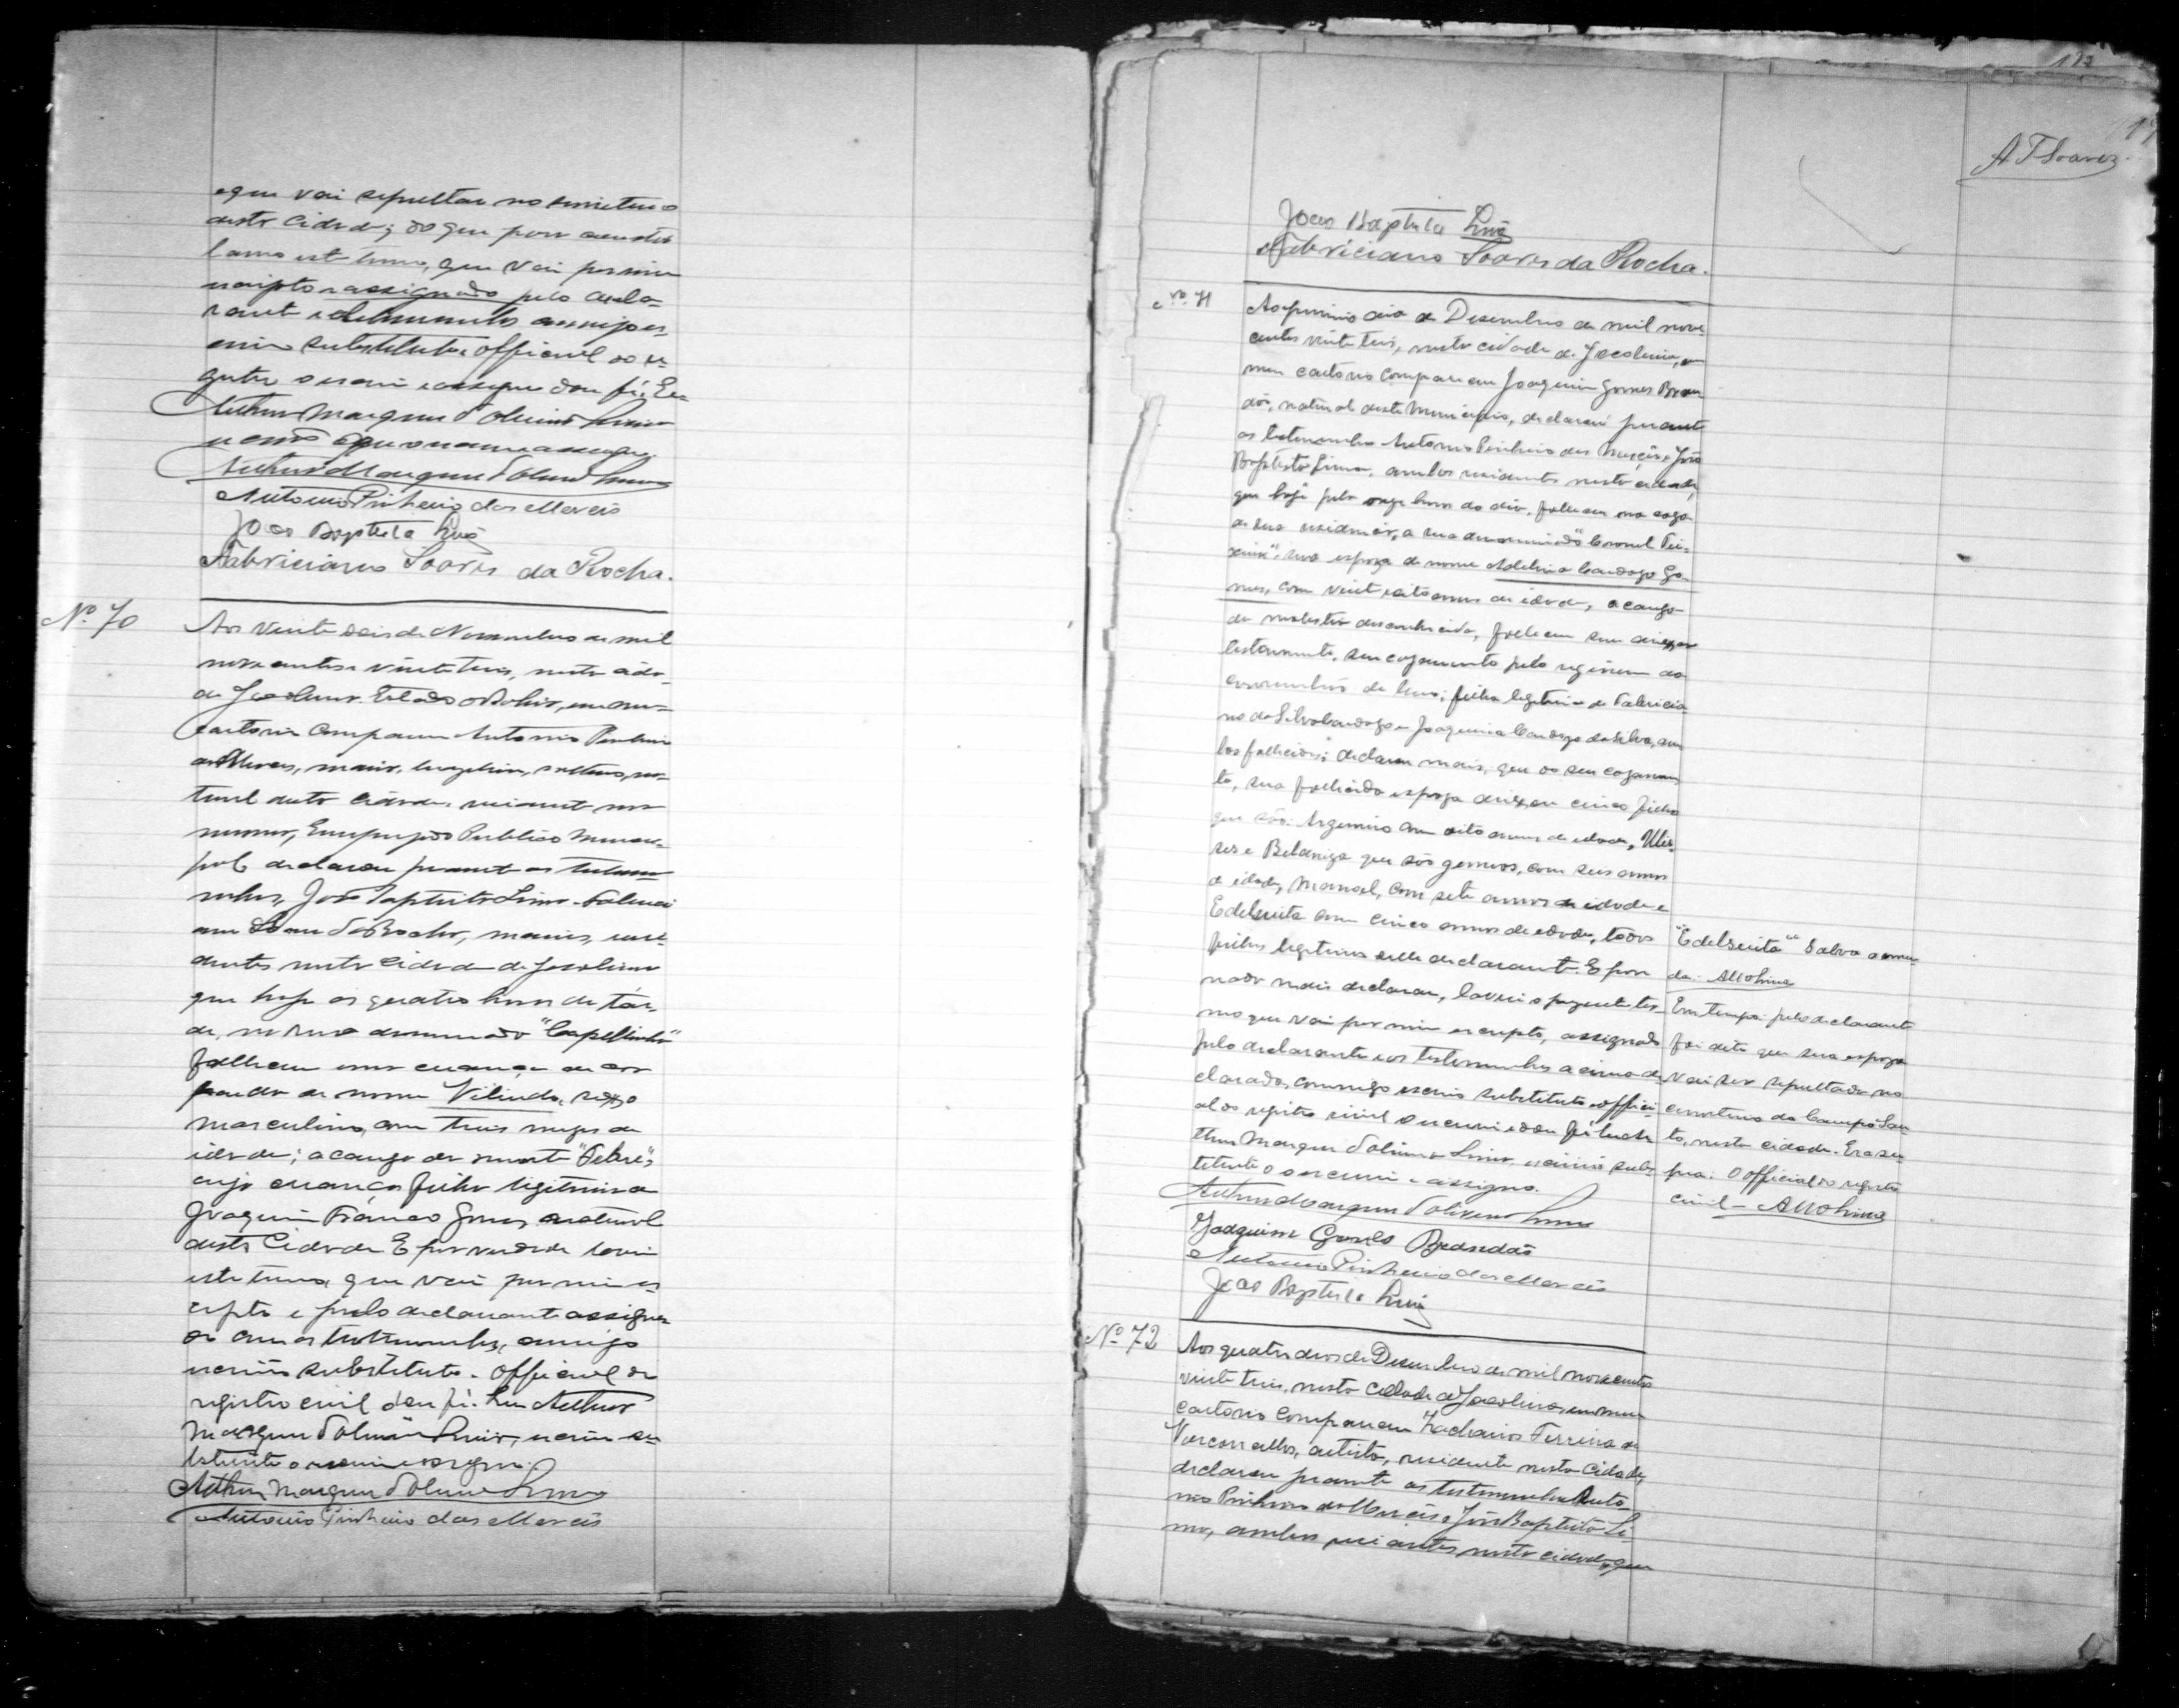 que vai sepultar no
desta Cidade; do que para
este termo, que vai por mim
escripto e assignado pelo decla-
rante e testemunhas commigo es-
crivão substituto official do re-
gistro o escrevi e assigno dou fé. Eu
Arthur Marques
escrivão que o escrevi e assigno.
Arthur Marques
Antonio Pinheiro das Mercês
João Baptista Lima
Fabriciano Soares da Rocha.
Nº 70
Aos vinte dois de Novembro de mil
novecentos e vinte tres, nesta cida-
de Jacobina Estado da Bahia, em meu
Cartorio Compareceu Antonio Pinheiro
das Mercês, maior, solteiro, na-
tural desta cidade, residente na
mesma, Empregado Publico Munici-
pal declarou perante as testemu-
nhas, João Baptista Lima
Soares da Rocha, maiores, resi-
dentes nesta Cidade de Jacobina
que hoje as quatro horas da tar-
de, na rua denominada "Capellinha"
falleceu uma creança de cor
parda de nome Vilindo, sexo
masculino, com tres mezes de
idade; a cauza da morte "Febre";
cuja creança filho legitimo de
Joaquim Franco Gomes natural
desta Cidade E por verdade lavrei
este termo que vai por mim es-
cripto e pelo declarante assigna-
do com as testemunhas, commigo
escrivão substituto. Official do
registro civil dou fé. Eu Arthur
Marques escrivão su-
bstituto o escrevi e assigno.
Arthur Marques
Antonio Pinheiro das Mercês
A T Soares
João Baptista Lima
Fabriciano Soares da Rocha.
Nº 71
Ao primeiro dia de Desembro de mil nove-
centos vinte tres, nesta cidade de Jacobina, em
meu cartorio compareceu Joaquim Gomes Bran-
dão, natural deste Municipio, declarou perante
as testemunhas Antonio Pinheiro das Mercês e João
Baptista Lima, ambos residentes nesta cidade,
que hoje pela onze horas do dia, falleceu na caza
de sua residencia, a rua denominada "Coronel Tei-
xeira", sua espoza de nome Adelina Cardozo Go-
mes, com vinte e oito annos de idade, a cauza
da molestia desconhecida, falleceu sem deixar
testamento, seu cazamento pelo regimen da
comunhão de bens; filha legitima de Fabricia-
no da Silva Cardozo e Joaquina Cardozo da Silva, am-
bos fallecidos; declarou mais, que do seu cazamen-
to, sua fallecida espoza deixou cinco filhos
que são: Argemiro com oito annos de idade, Ulis-
ses e Belaniza que são gemeos, com seis annos
de idade, Manoel, com sete annos de idade e
Edelzuita com cinco annos de idade, todos
filhos legitimos delle declarante. E por
nada mais declarar, lavrei o presente ter-
mo que vai por mim escripto, assignado
pelo declarante e as testemunhas acima de-
claradas, commigo escrivão substituto e offici-
al do registro civil o escrevi e dou fé. Eu Ar-
thur Marques escrivão subs-
tituto o escrevi e assigno.
Arthur Marques
Joaquim Gomes Brandão
Antonio Pinheiro das Mercês
João Baptista Lima
"Edelzuita" Salva a emen-
da.
Em tempo: pelo declarante
foi dito que sua espoza
vai ser sepultada no
cemiterio do Campo San-
to, nesta cidade. Era su-
pra. O official do registro
civil
Nº 72
Aos quatro dias de Desembro de mil novecentos
vinte tres, nesta Cidade de Jacobina, em meu
Cartorio compareceu Zacharias Ferreira de
Vasconcellos, artista, residente nesta Cidade,
declarou perante as testemunhas Anto-
nio Pinheiro das Mercês e João Baptista Li-
ma, ambos residentes nesta cidade, que